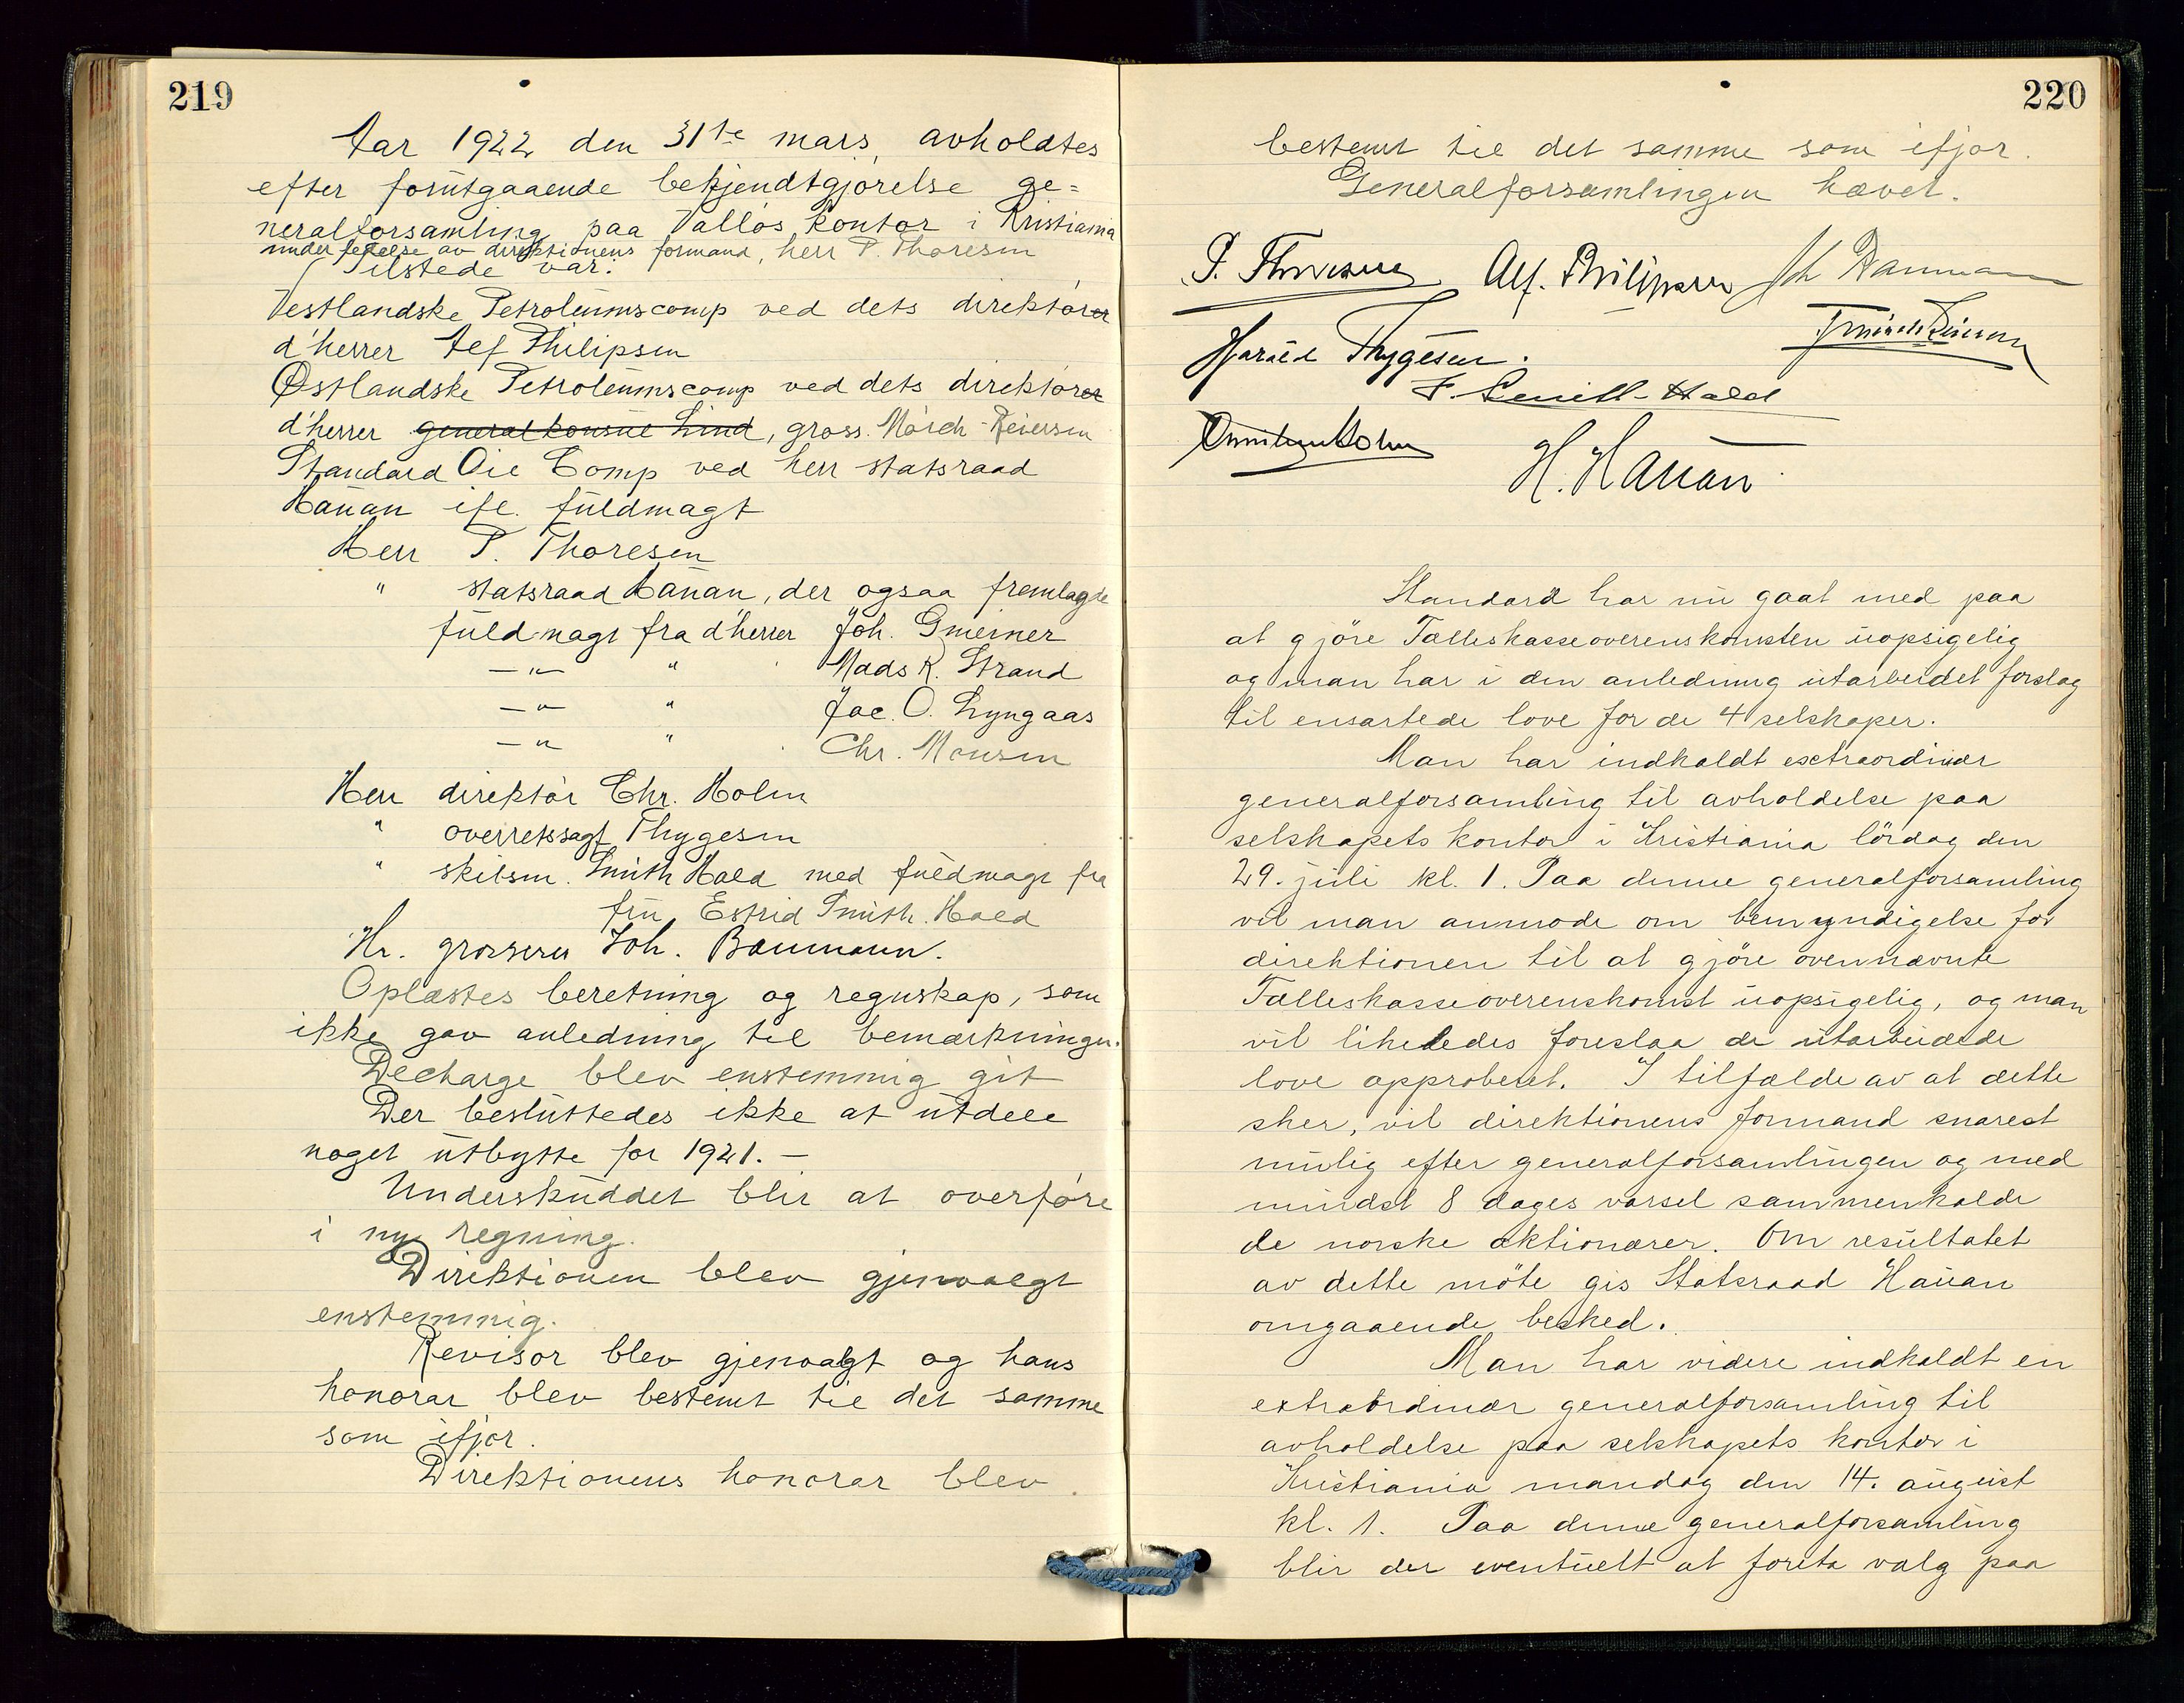 219
Aar 1922 den 31te mars, avholdtes
efter forutgaaende bekjendtgjørelse ge=
neralforsamling paa Valløs kontor i Kristiania
under ledelse av direktionens formand, herr P. Thoresen
Tilstede var:
Vestlandske Petroleumscomp ved dets direktører
d'herrer Alf Philipsen
Østlandske Petroleumscomp ved dets direktører
d'herrer generalkonsul Lind, gross. Mørch-Reiersen
Standard Oil Comp ved herr statsraad
Hauan ifl. fuldmagt
Herr P. Thoresen
" statsraad Hauan, der ogsaa fremlagde
fuldmagt fra d'herrer Joh. Gmeiner
—"— " Mads K. Strand
—"— " Jac. O. Lyngaas
—"— " Chr. Monsen
Herr direktør Chr. Holm
" overretssagf Thygesen
" skibsm. Smith Hald med fuldmagt fra
fru Estrid Smith-Hald
Hr. grosserer Joh. Baumann.
Oplæstes beretning og regnskap, som
ikke gav anledning til bemærkninger.
Decharge blev enstemmig git
Der besluttedes ikke at utdele
noget utbytte for 1921. –
Underskuddet blir at overføre
i ny regning.
Direktionen blev gjenvalgt
enstemmig.
Revisor blev gjenvalgt og hans
honorar blev bestemt til det samme
som ifjor.
Direktionens honorar blev
220
bestemt til det samme som ifjor.
Generalforsamlingen hævet.
P. Thoresen Alf. Philipsen Joh Baumann
Harald Thygesen. Mørch Reiersen
F. Smith-Hald
Christian Holm
H. Hauan
Standard har nu gaat med paa
at gjöre Fælleskasseoverenskomsten uopsigelig
og man har i den anledning utarbeidet forslag
til ensartede love for de 4 selskaper.
Man har indkaldt extraordinær
generalforsamling til avholdelse paa
selskapets kontor i Kristiania lördag den
29. juli kl. 1. Paa denne generalforsamling
vil man anmode om bemyndigelse for
direktionen til at gjöre ovennævnte
Fælleskasseoverenskomst uopsigelig, og man
vil likeledes foreslaa de utarbeidede
love approbert. I tilfælde av at dette
sker, vil direktionens formand snarest
mulig efter generalforsamlingen og med
mindst 8 dages varsel sammenkalde
de norske aktionærer. Om resultatet
av dette möte gis Statsraad Hauan
omgaaende besked.
Man har videre indkaldt en
extraordinær generalforsamling til
avholdelse paa selskapets kontor i
Kristiania mandag den 14. august
kl. 1. Paa denne generalforsamling
blir der eventuelt at foreta valg paa